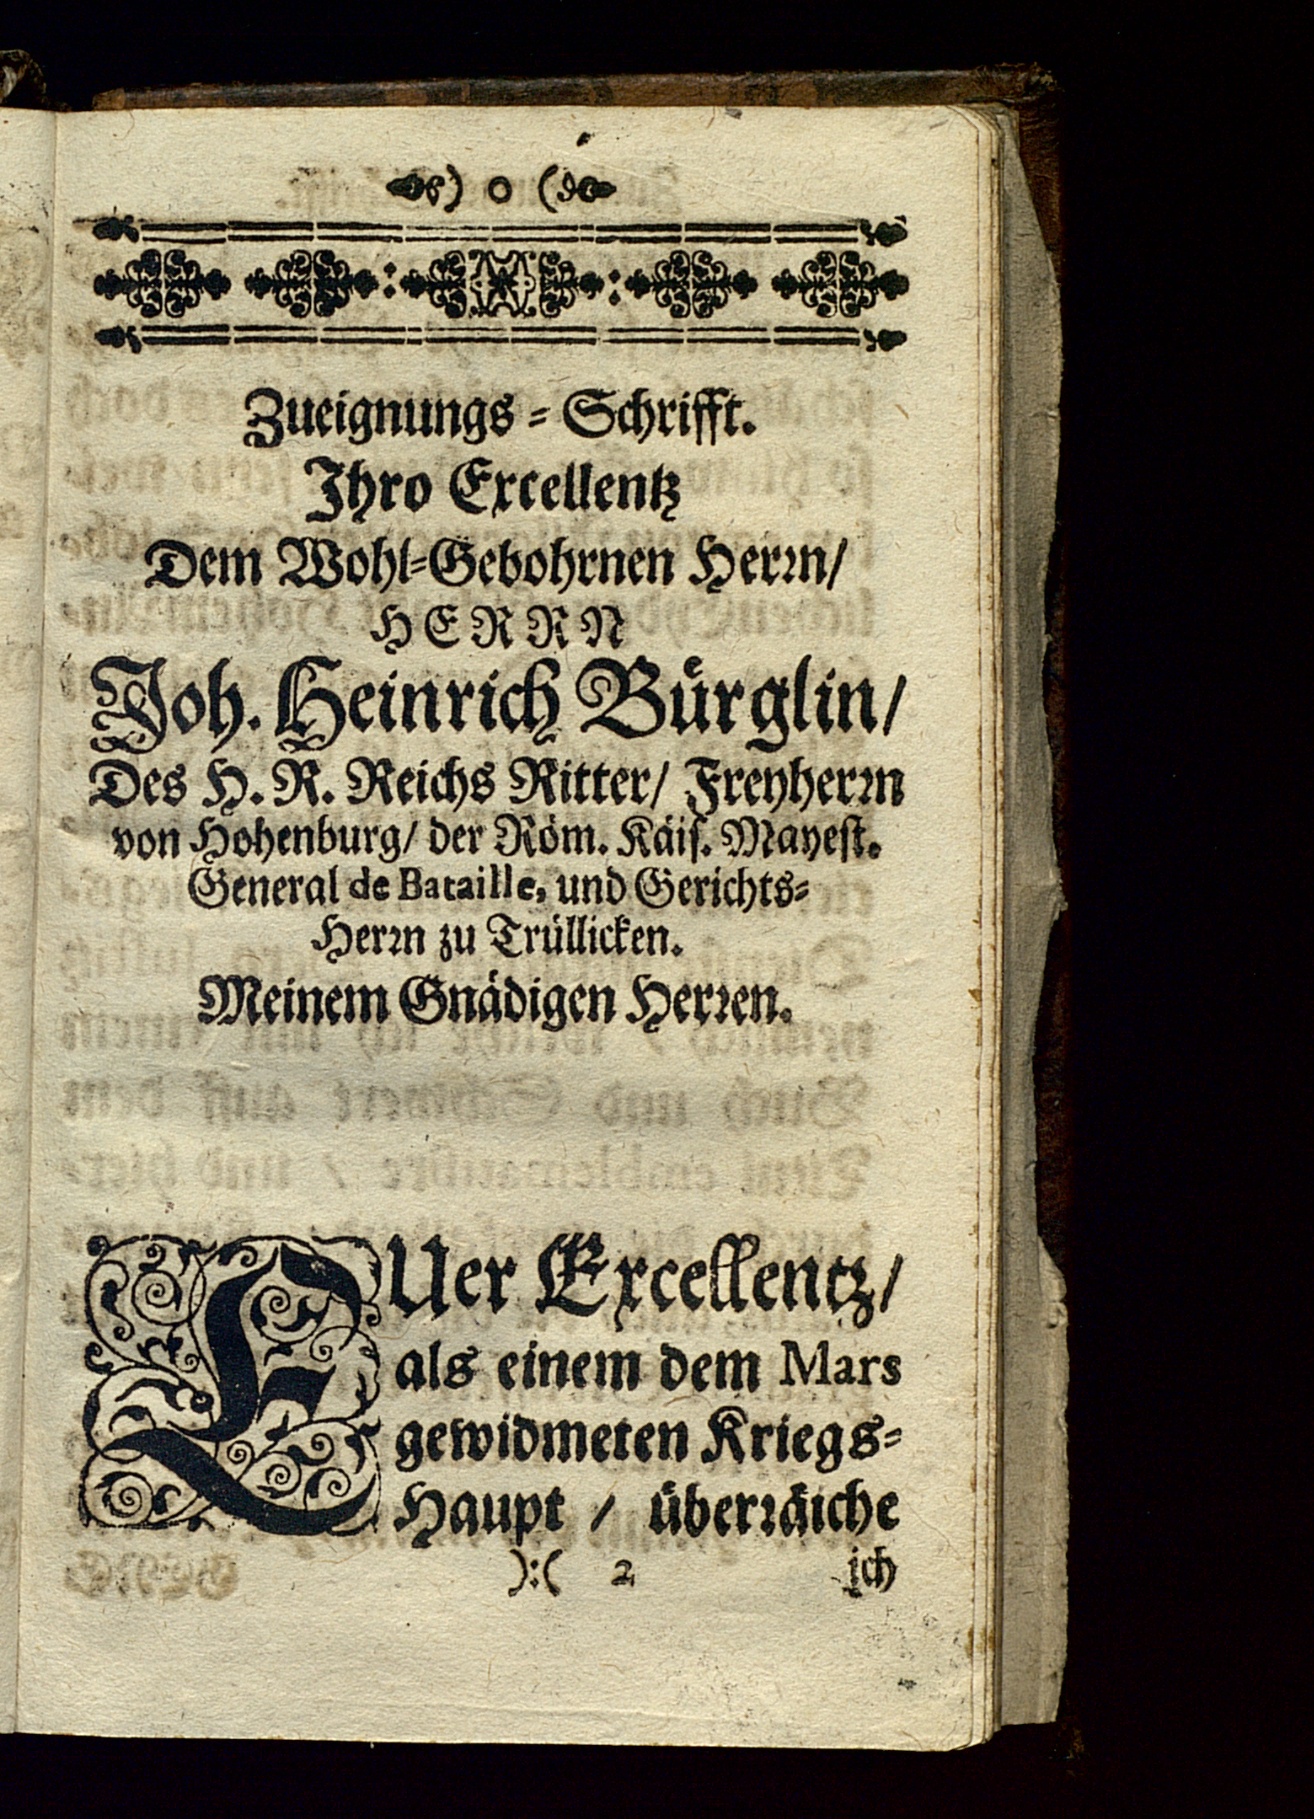 ) o (
Zueignungs-Schrifft.
Ihro Excellentz
Dem Wohl-Gebohrnen Herrn/
HERRN
Joh. Heinrich Bürglin/
Des H. R. Reichs Ritter/ Freyherrn
von Hohenburg/ der Röm. Käis. Mayest.
General de Bataille, und Gerichts-
Herrn zu Trüllicken.
Meinem Gnädigen Herren.
EUer Excellentz/
als einem dem Mars
gewidmeten Kriegs-
Haupt / überräiche
):( 2 ich